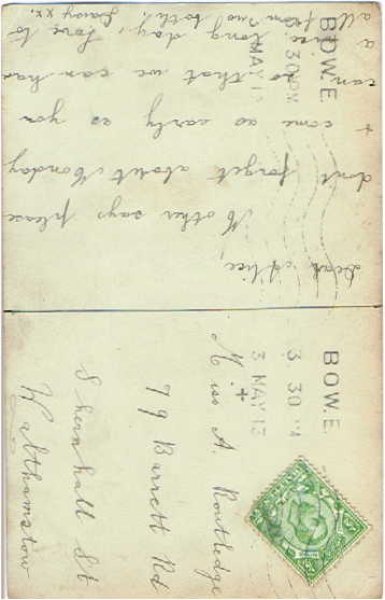 Dear Alice,
Mother says please
dont forget about Monday
& come as early as you
can so that we can have
a nice long day, love to
all from 2 no both,
BOW.E.
3.30 PM
3 MAY 13
BOW.E.
3.30 PM
3 MAY 13
Miss A. Routledge
79 Barrett Rd
Shernhall St
Walthamstow